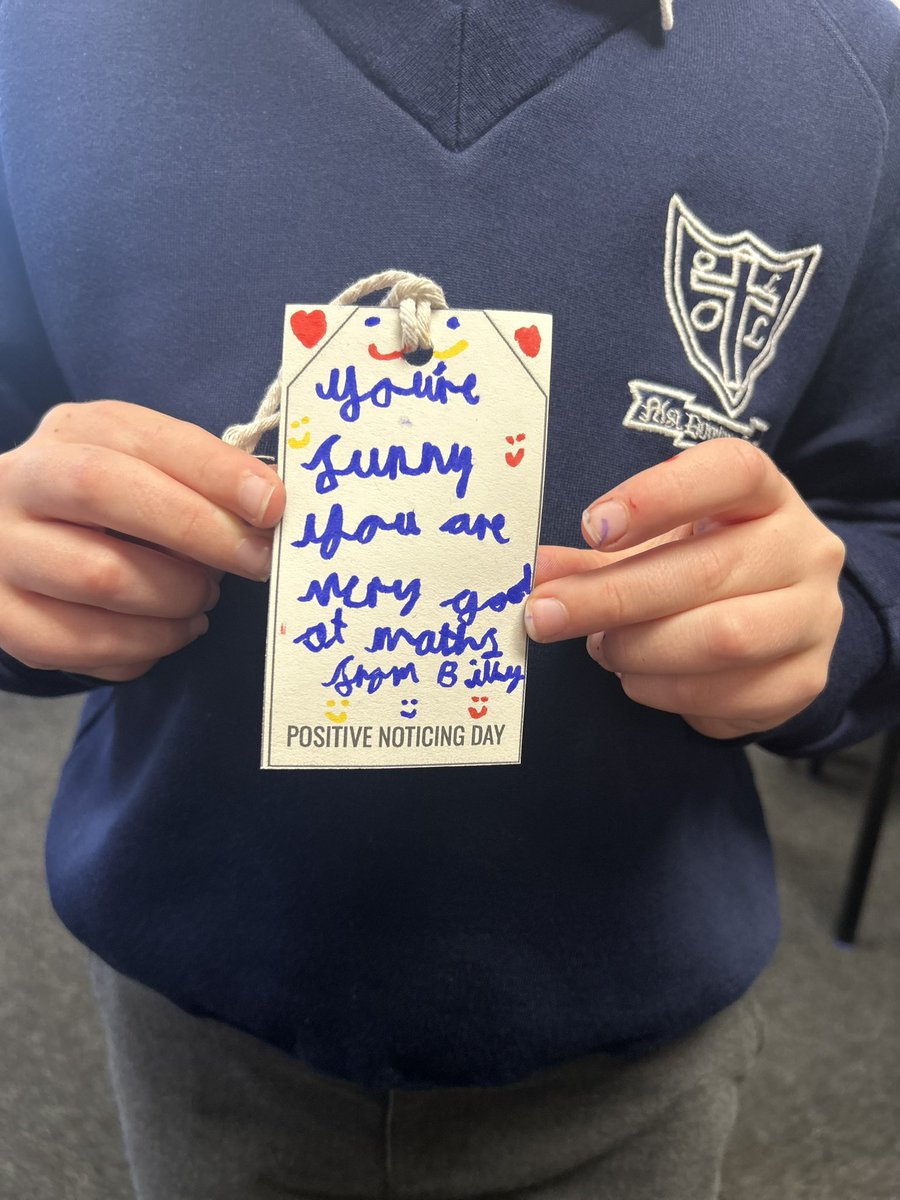 You're
funny
you are
very good
at maths
from Billy
POSITIVE NOTICING DAY